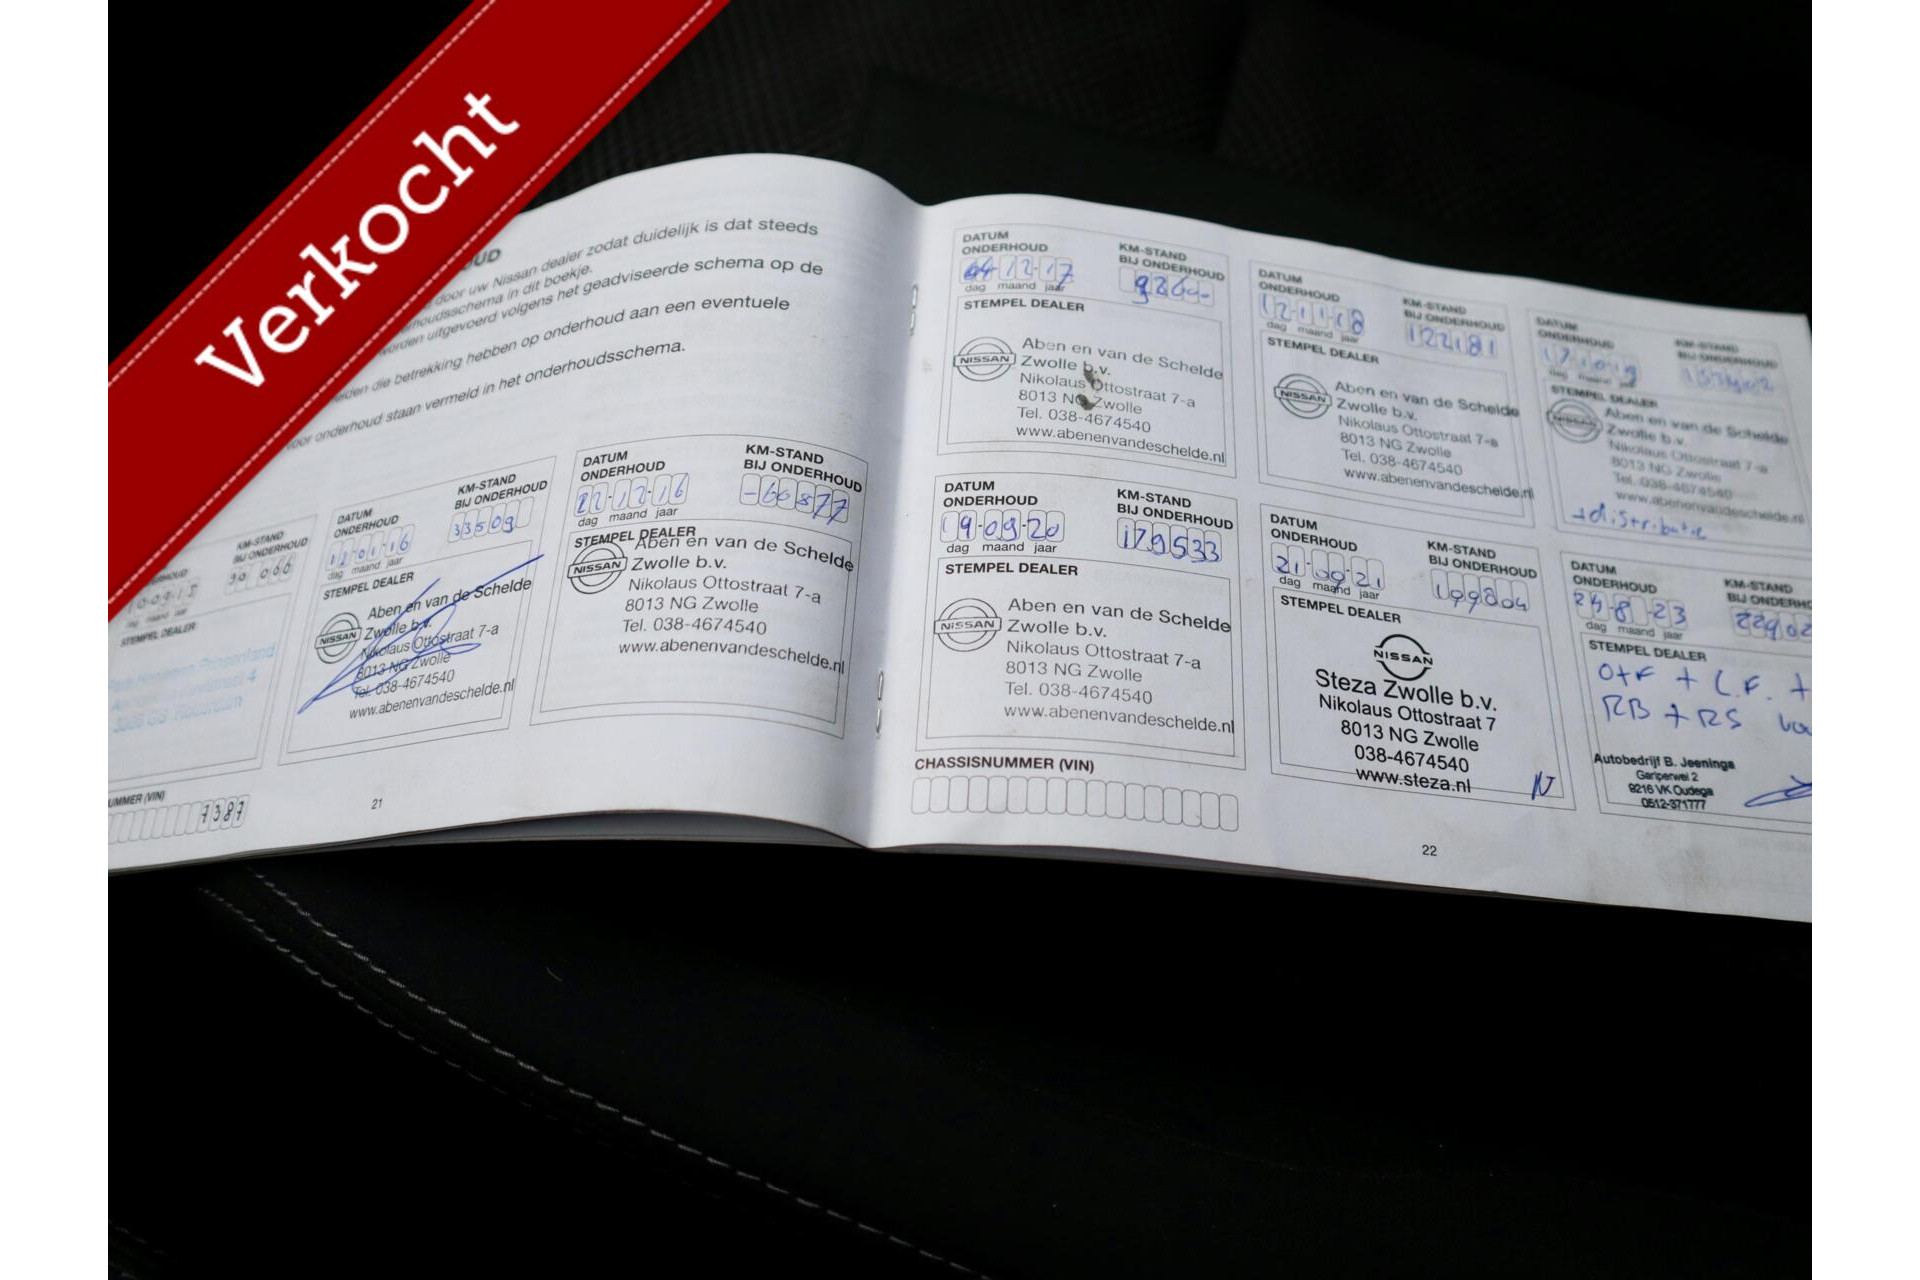 Verkocht
OUD
door uw Nissan dealer zodat duidelijk is dat steeds
houdsschema in dit boekje.
orden uitgevoerd volgens het geadviseerde schema op de
den die betrekking hebben op onderhoud aan een eventuele
oor onderhoud staan vermeld in het onderhoudsschema.
KM-STAND
BIJ ONDERHOUD
30 066
dag maand jaar
STEMPEL DEALER
UMMER (VIN)
7387
DATUM
ONDERHOUD
12-01-16
dag maand jaar
KM-STAND
BIJ ONDERHOUD
33509
STEMPEL DEALER
NISSAN
Aben en van de Schelde
Zwolle b.v.
Nikolaus Ottostraat 7-a
8013 NG Zwolle
Tel. 038-4674540
www.abenenvandeschelde.nl
DATUM
ONDERHOUD
22-12-16
dag maand jaar
KM-STAND
BIJ ONDERHOUD
-60877
STEMPEL DEALER
NISSAN
Aben en van de Schelde
Zwolle b.v.
Nikolaus Ottostraat 7-a
8013 NG Zwolle
Tel. 038-4674540
www.abenenvandeschelde.nl
21
DATUM
ONDERHOUD
04-12-17
dag maand jaar
KM-STAND
BIJ ONDERHOUD
STEMPEL DEALER
NISSAN
Aben en van de Schelde
Zwolle b.v.
Nikolaus Ottostraat 7-a
8013 NG Zwolle
Tel. 038-4674540
www.abenenvandeschelde.nl
DATUM
ONDERHOUD
12-11-18
dag maand jaar
KM-STAND
BIJ ONDERHOUD
122181
STEMPEL DEALER
NISSAN
Aben en van de Schelde
Zwolle b.v.
Nikolaus Ottostraat 7-a
8013 NG Zwolle
Tel. 038-4674540
www.abenenvandeschelde.nl
DATUM
ONDERHOUD
dag maand jaar
KM-STAND
BIJ ONDERHOUD
STEMPEL DEALER
NISSAN
Aben en van de Schelde
Zwolle b.v.
Nikolaus Ottostraat 7-a
8013 NG Zwolle
Tel. 038-4674540
www.abenenvandeschelde.nl
+distributie
DATUM
ONDERHOUD
19-09-20
dag maand jaar
KM-STAND
BIJ ONDERHOUD
179533
STEMPEL DEALER
NISSAN
Aben en van de Schelde
Zwolle b.v.
Nikolaus Ottostraat 7-a
8013 NG Zwolle
Tel. 038-4674540
www.abenenvandeschelde.nl
DATUM
ONDERHOUD
21-09-21
dag maand jaar
KM-STAND
BIJ ONDERHOUD
199804
STEMPEL DEALER
NISSAN
Steza Zwolle b.v.
Nikolaus Ottostraat 7
8013 NG Zwolle
038-4674540
www.steza.nl
DATUM
ONDERHOUD
24-8-23
dag maand jaar
KM-STAND
BIJ ONDERHO
22902
STEMPEL DEALER
O+F + L.F. +
RB + RS
Autobedrijf B. Jeeninga
Gariperwei 2
9216 VK Oudega
0512-371777
CHASSISNUMMER (VIN)
22